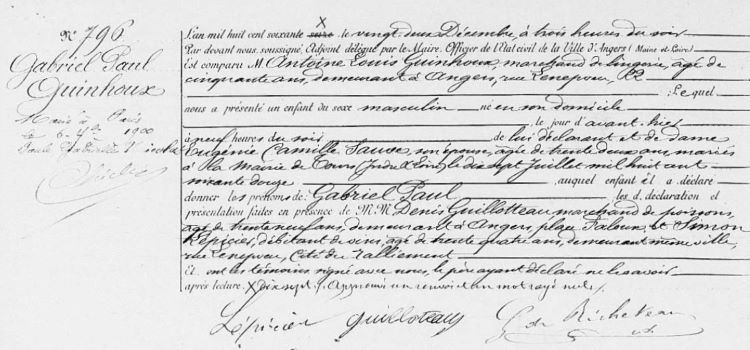 N° 796
Gabriel Paul
Guinhoux
Marié à Paris
le 6 1900
L'an mil huit cent soixante X onze le vingt deux Décembre, à trois heures du soir
Par devant nous soussigné, Adjoint délégué par le Maire, Officier de l'Etat civil de la Ville d'Angers (Maine et Loire)
Est comparu M. Antoine Louis Guinhoux, marchand de lingerie, âgé de
cinquante ans, demeurant à Angers, rue Lenepveu, 22
Lequel
nous a présenté un enfant du sexe masculin né en son domicile
le jour d'avant hier
à neuf heures du soir de lui déclarant et de dame
Eugénie Camille Sauve son épouse, âgée de trente deux ans, mariés
à la Mairie de Tours (Indre & Loire) le dix sept Juillet mil huit cent
soixante douze auquel enfant il a déclaré
donner les prénoms de Gabriel Paul les d. déclaration et
présentation faites en présence de MM. Denis Guillotteau marchand de poissons,
âgé de trente neuf ans, demeurant à Angers, place Falloux, et Simon
Lépicier, débitant de vins, âgé de trente quatre ans, demeurant même ville,
rue Lenepveu, Cité du Ralliement
Et ont les témoins signé avec nous, le père ayant déclaré ne le savoir
après lecture. X Dix sept ./. Approuvé un renvoi & un mot rayé nuls ./.
Lépicier Guilloteau G. de Richeteau